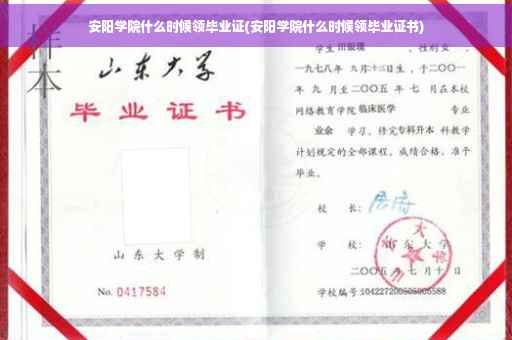 安阳学院什么时候领毕业证(安阳学院什么时候领毕业证书)
样本
山东大学
毕业证书
山东大学制
No. 0417584
学生 性别女，
一九七八年 九月十三日生，于二〇〇一
年 九 月至二〇〇五 年 七 月在本校
网络教育学院 临床医学 专业
业余 学习，修完专科升本 科教学
计划规定的全部课程，成绩合格，准予
毕业。
校 长：
学 校： 山东大学
二〇〇五 年 七 月 十 日
学校编号: